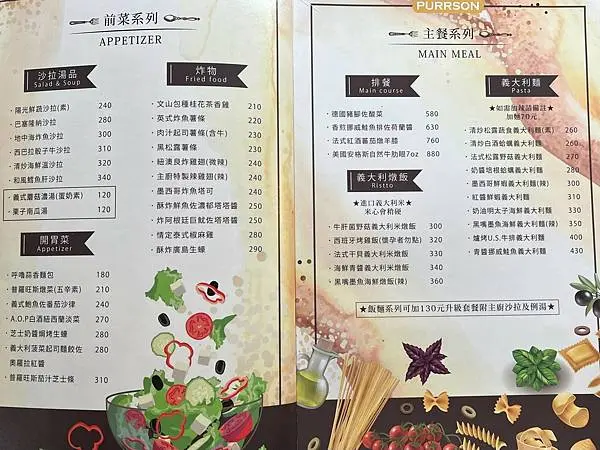 前菜系列
APPETIZER
沙拉湯品
Salad & Soup
・陽光鮮蔬沙拉(素) 240
・巴塞隆納沙拉 280
・地中海炸魚沙拉 310
・西巴拉骰子牛沙拉 310
・清炒海鮮溫沙拉 320
・和風鱈魚肝沙拉 340
・義式蘑菇濃湯(蛋奶素) 120
・栗子南瓜湯 120
開胃菜
Appetizer
・呼嚕蒜香麵包 180
・普羅旺斯燉菜(五辛素) 210
・義式鮑魚佐番茄沙律 240
・A.O.P白酒紐西蘭淡菜 270
・芝士奶醬焗烤生蠔 280
・義大利菠菜起司麵餃佐 280
奧羅拉紅醬
・普羅旺斯茄汁芝士條 310
炸物
Fried food
・文山包種桂花茶香雞 210
・英式炸魚薯條 220
・肉汁起司薯條(含牛) 230
・黑松露薯條 230
・紐澳良炸雞翅(微辣) 240
・主廚特製辣雞翅(辣) 240
・墨西哥炸魚塔可 240
・酥炸鮮魚佐濃郁塔塔醬 250
・炸阿根廷巨魷佐塔塔醬 250
・情定泰式椒麻雞 280
・酥炸廣島生蠔 290
PURRSON
主餐系列
MAIN MEAL
排餐
Main course
・德國豬腳佐酸菜 580
・香煎挪威鮭魚排佐荷蘭醬 630
・法式紅酒蕃茄燉羊膝 760
・美國安格斯自然牛肋眼7oz 880
義大利燉飯
Ristto
★進口義大利米★
米心會稍硬
・牛肝菌野菇義大利米燉飯 300
・西班牙烤雞飯(懷孕者勿點) 320
・法式干貝義大利米燉飯 340
・海鮮青醬義大利米燉飯 340
・黑嘴墨魚海鮮燉飯(辣) 360
義大利麵
Pasta
★如需加辣請備註★
加麵70元
・清炒松露蔬食義大利麵(素) 260
・清炒白酒蛤蠣義大利麵 260
・法式松露野菇義大利麵 270
・奶醬培根蛤蠣義大利麵 280
・墨西哥鮮蝦義大利麵(辣) 300
・紅醬鮮蝦義大利麵 310
・奶油明太子海鮮義大利麵 330
・黑嘴墨魚海鮮義大利麵(辣) 350
・爐烤U.S.牛排義大利麵 400
・青醬挪威鮭魚義大利麵 430
★飯麵系列可加130元升級套餐附主廚沙拉及例湯★